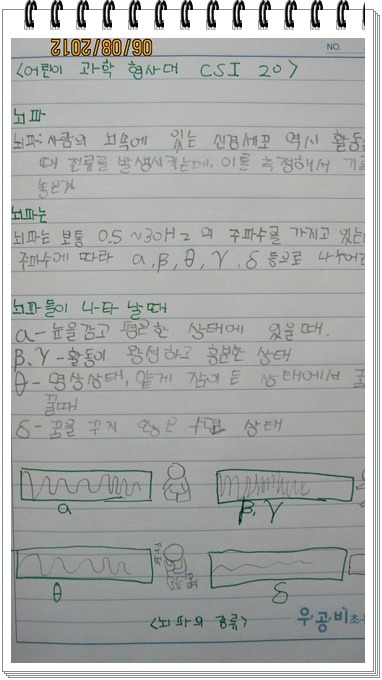 06/08/2012
NO.
<어린이 과학 형사대 CSI 20>
뇌파
뇌파: 사람의 뇌속에 있는 신경세포 역시 활동
때 전류를 발생시키는데, 이를 측정해서 기
놓은것
뇌파는
뇌파는 보통 0.5 ~30Hz 의 주파수를 가지고 있는
주파수에 따라 α, β, θ, γ, δ 등으로 나누어
뇌파들이 나타 날때
α - 눈을감고 평온한 상태에 있을때.
β, γ - 활동이 왕성하고 흥분한 상태
θ - 명상상태, 얕게 잠이 든 상태에서 꿈
꿀때
δ - 꿈을 꾸지 않는 수면 상태
α
β, γ
θ
δ
<뇌파의 종류>
우공비초